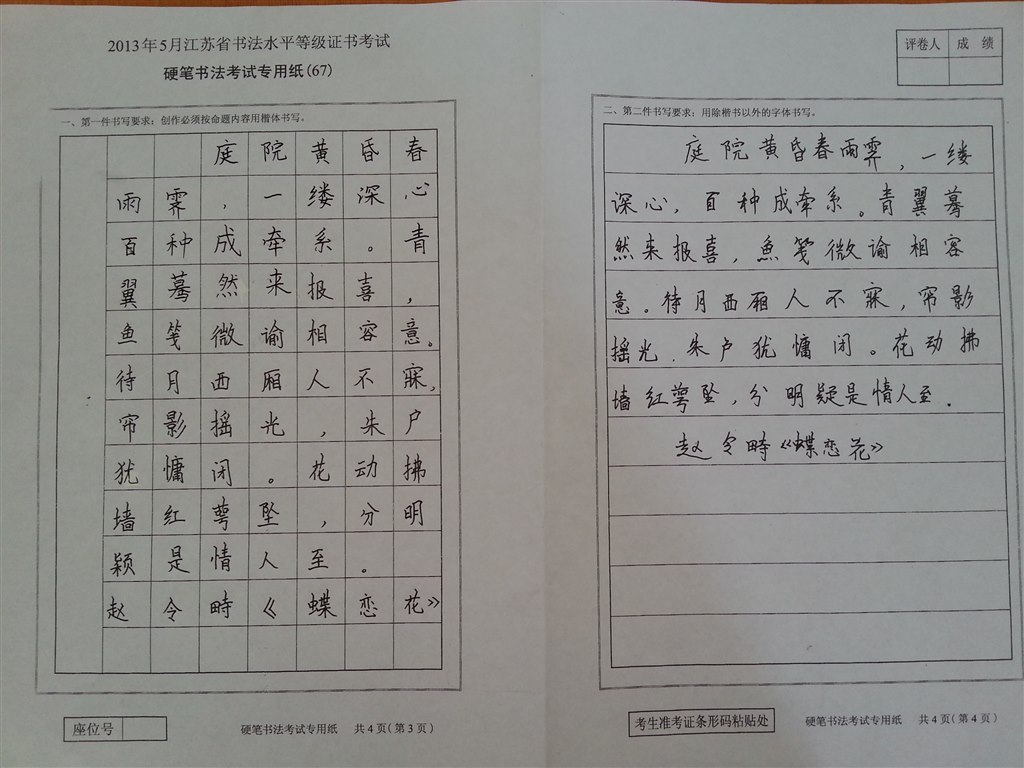 2013年5月江苏省书法水平等级证书考试
硬笔书法考试专用纸(67)
一、第一件书写要求：创作必须按命题内容用楷体书写。
庭院黄昏春
雨霁，一缕深心
百种成牵系。青
翼蓦然来报喜，
鱼笺微谕相容意。
待月西厢人不寐，
帘影摇光，朱户
犹慵闭。花动拂
墙红萼坠，分明
颖是情人至。
赵令畤《蝶恋花》
座位号
硬笔书法考试专用纸 共4页(第3页)
评卷人 成绩
二、第二件书写要求：用除楷书以外的字体书写。
庭院黄昏春雨霁，一缕
深心，百种成牵系。青翼蓦
然来报喜，魚笺微谕相容
意。待月西厢人不寐，帘影
摇光，朱户犹慵闭。花动拂
墙红萼坠，分明疑是情人至.
赵令畤《蝶恋花》
考生准考证条形码粘贴处
硬笔书法考试专用纸 共4页(第4页)